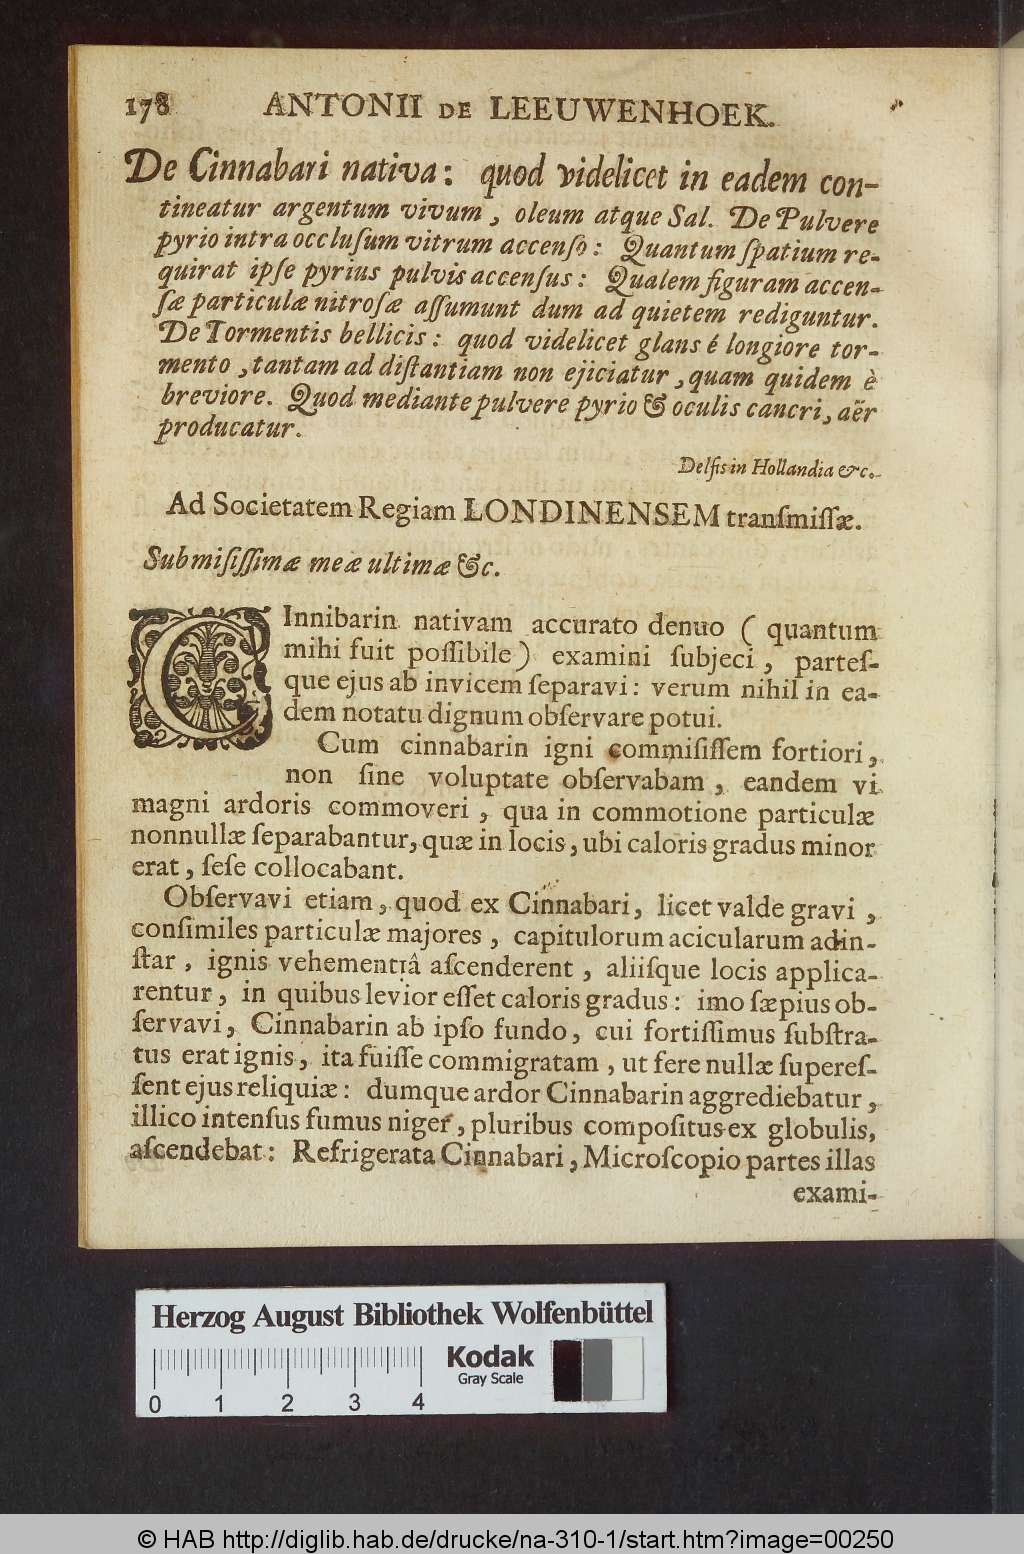 178 ANTONII DE LEEUWENHOEK.
De Cinnabari nativa: quod videlicet in eadem con-
tineatur argentum vivum, oleum atque Sal. De Pulvere
pyrio intra occluſum vitrum accenſo: Quantum ſpatium re-
quirat ipſe pyrius pulvis accenſus: Qualem figuram accen-
ſæ particulæ nitroſæ aſſumunt dum ad quietem rediguntur.
De Tormentis bellicis: quod videlicet glans é longiore tor-
mento, tantam ad diſtantiam non ejiciatur, quam quidem è
breviore. Quod mediante pulvere pyrio & oculis cancri, aër
producatur.
Delfis in Hollandia &c.
Ad Societatem Regiam LONDINENSEM tranſmiſſæ.
Submiſiſſimæ meæ ultimæ &c.
CInnibarin nativam accurato denuo (quantum
mihi fuit poſſibile) examini ſubjeci, parteſ-
que ejus ab invicem ſeparavi: verum nihil in ea-
dem notatu dignum obſervare potui.
Cum cinnabarin igni commiſiſſem fortiori,
non ſine voluptate obſervabam, eandem vi
magni ardoris commoveri, qua in commotione particulæ
nonnullæ ſeparabantur, quæ in locis, ubi caloris gradus minor
erat, ſeſe collocabant.
Obſervavi etiam, quod ex Cinnabari, licet valde gravi,
conſimiles particulæ majores, capitulorum acicularum ad in-
ſtar, ignis vehementiâ aſcenderent, aliiſque locis applica-
rentur, in quibus levior eſſet caloris gradus: imo ſæpius ob-
ſervavi, Cinnabarin ab ipſo fundo, cui fortiſſimus ſubſtra-
tus erat ignis, ita fuiſſe commigratam, ut fere nullæ ſupereſ-
ſent ejus reliquiæ: dumque ardor Cinnabarin aggrediebatur,
illico intenſus fumus niger, pluribus compoſitus ex globulis,
aſcendebat: Refrigerata Cinnabari, Microſcopio partes illas
exami-
Herzog August Bibliothek Wolfenbüttel
Kodak
Gray Scale
0 1 2 3 4
© HAB http://diglib.hab.de/drucke/na-310-1/start.htm?image=00250